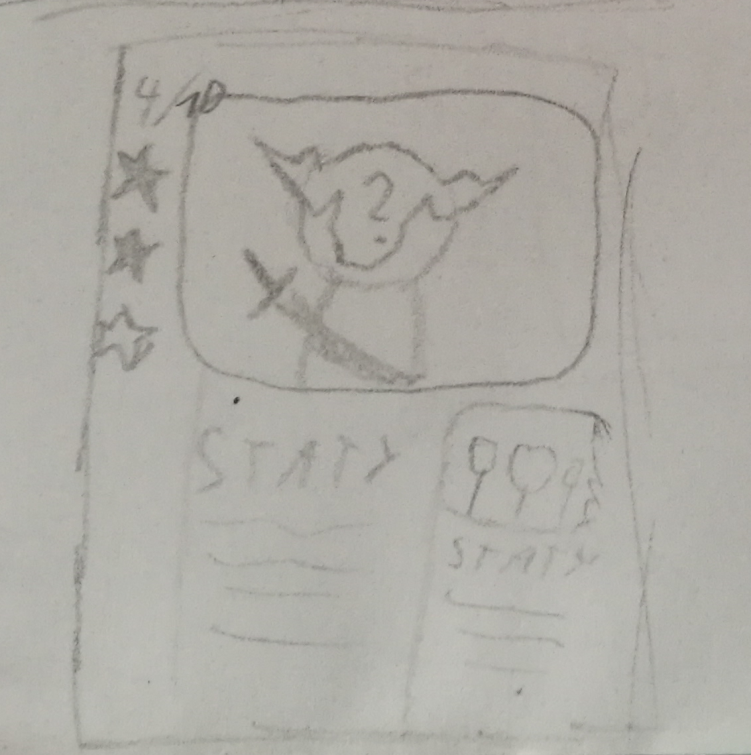 4/10
?
STATY
STATY